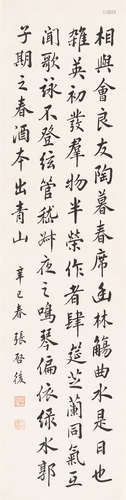 相與會良友陶暮春席幽林觴曲水是日也
雜英初發群物半榮作者肆筵芝蘭同氣五
聞歌詠不登絃管嵇叔夜之鳴琴偏依綠水郭
子期之春酒本出青山
辛巳春 張啓後